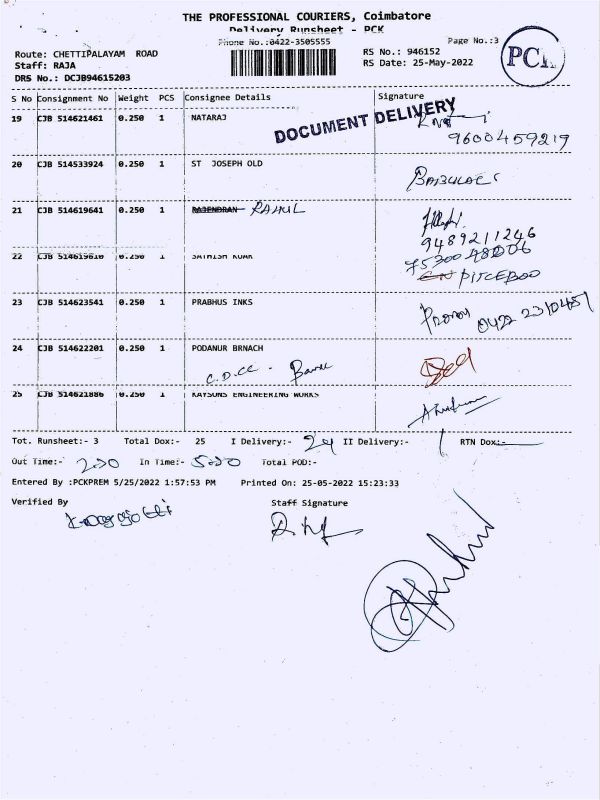 THE PROFESSIONAL COURIERS, Coimbatore
Delivery Runsheet - PCK
Phone No.:0422-3505555
Page No.:3
PCK
Route: CHETTIPALAYAM ROAD
RS No.: 946152
Staff: RAJA
RS Date: 25-May-2022
DRS No.: DCJB94615203
S No Consignment No Weight PCS Consignee Details Signature
DOCUMENT DELIVERY
19 CJB 514621461 0.250 1 NATARAJ
9600459219
20 CJB 514533924 0.250 1 ST JOSEPH OLD
21 CJB 514619641 0.250 1 RAJENDRAN RAHUL
9489211246
22 CJB 514619610 0.250 1
23 CJB 514623541 0.250 1 PRABHUS INKS
0422 2310451
24 CJB 514622201 0.250 1 PODANUR BRNACH
C.D.CC -
25 CJB 514621886 0.250 1 KAYSONS ENGINEERING WORKS
Tot. Runsheet:- 3 Total Dox:- 25 I Delivery:- 24 II Delivery:- 1 RTN Dox:-
Out Time:- In Time:- Total POD:-
Entered By :PCKPREM 5/25/2022 1:57:53 PM Printed On: 25-05-2022 15:23:33
Verified By Staff Signature